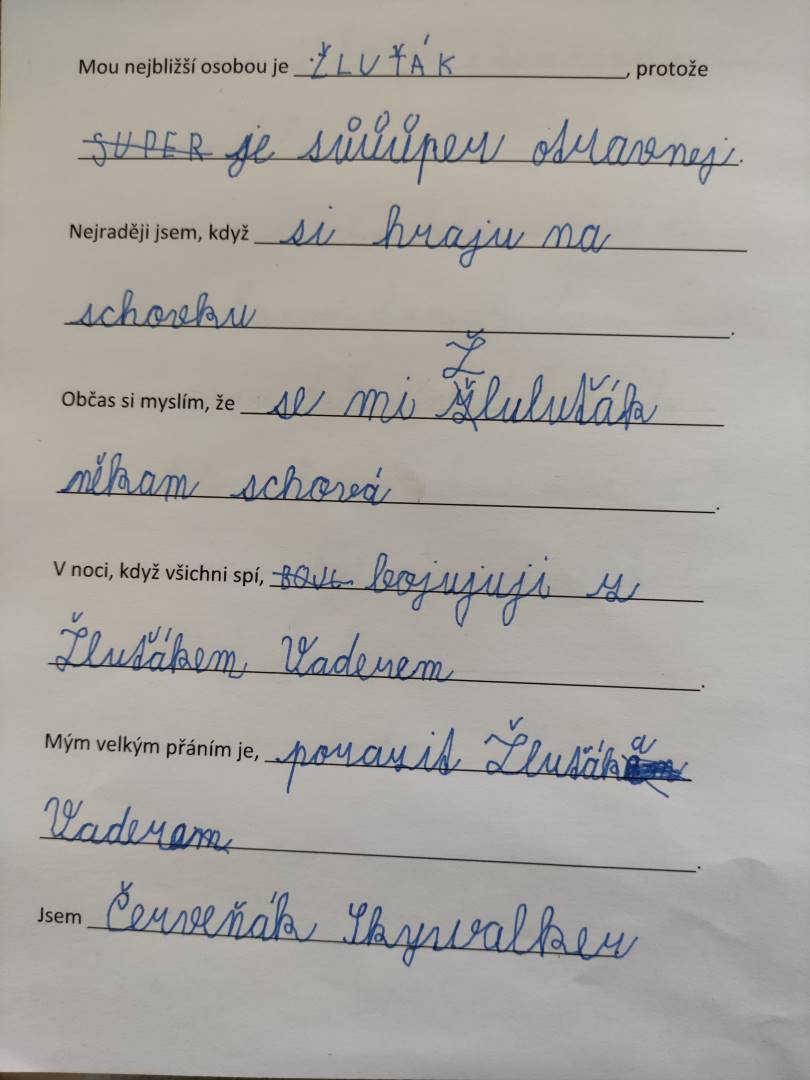 Mou nejbližší osobou je ŽLUŤÁK, protože
SUPER je sůůůper otravnej.
Nejraději jsem, když si hraju na
schovku.
Občas si myslím, že se mi Žluluťák
někam schová.
V noci, když všichni spí, bojujuji z
Žluťákem Vaderem.
Mým velkým přáním je, porazit Žluťáka
Vaderam.
Jsem Červeňák Skywalker